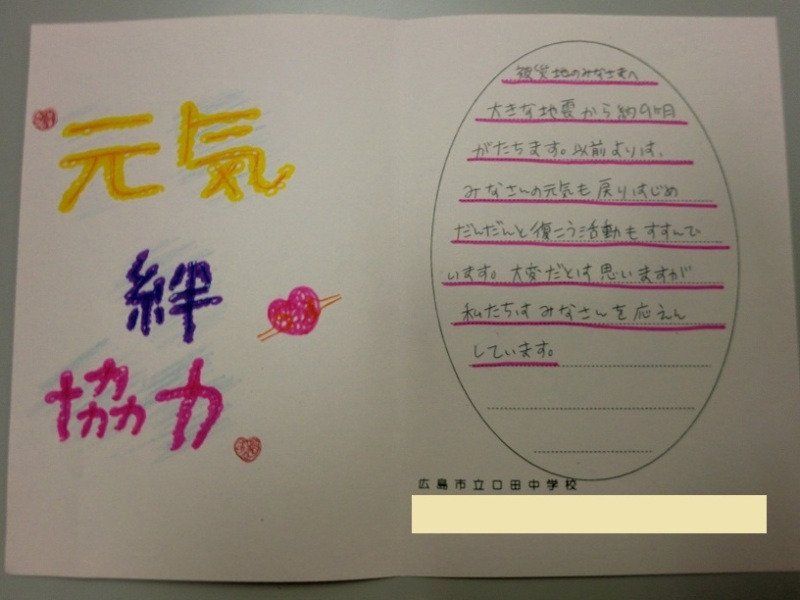 元気
絆
協力
被災地のみなさまへ
大きな地震から約9ヶ月
がたちます。以前よりは、
みなさんの元気も戻りはじめ
だんだんと復こう活動もすすんで
います。大変だとは思いますが
私たちは みなさんを応えん
しています。
広島市立口田中学校